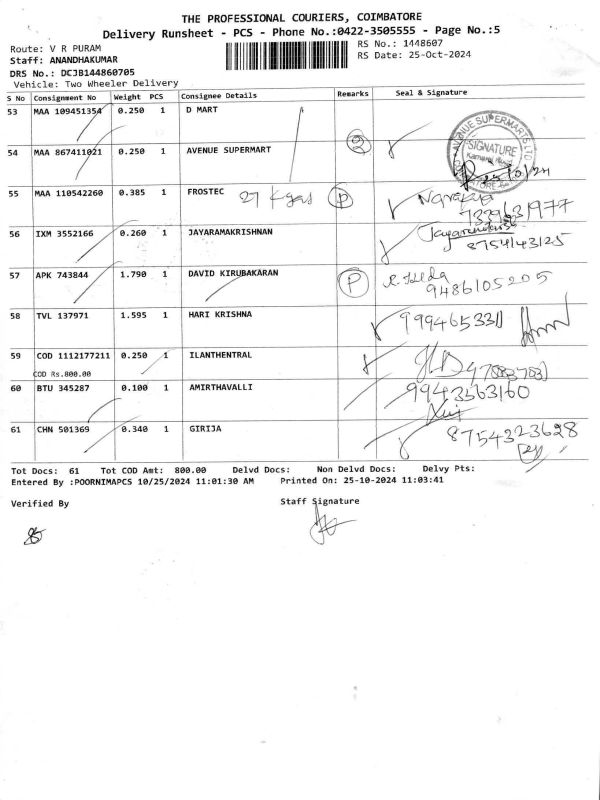 THE PROFESSIONAL COURIERS, COIMBATORE
Delivery Runsheet - PCS - Phone No.:0422-3505555 - Page No.:5
Route: V R PURAM
RS No.: 1448607
Staff: ANANDHAKUMAR
RS Date: 25-Oct-2024
DRS No.: DCJB144860705
Vehicle: Two Wheeler Delivery
S No Consignment No Weight PCS Consignee Details Remarks Seal & Signature
53 MAA 109451354 0.250 1 D MART
AVENUE SUPERMARTS LTD
SIGNATURE
54 MAA 867411021 0.250 1 AVENUE SUPERMART
55 MAA 110542260 0.385 1 FROSTEC 27 Kgas P
7339631977
56 IXM 3552166 0.260 1 JAYARAMAKRISHNAN
8754143125
57 APK 743844 1.790 1 DAVID KIRUBAKARAN P
9486105205
58 TVL 137971 1.595 1 HARI KRISHNA 9994653311
59 COD 1112177211 0.250 1 ILANTHENTRAL
COD Rs.800.00
60 BTU 345287 0.100 1 AMIRTHAVALLI 9943563160
61 CHN 501369 0.340 1 GIRIJA 8754323628
Tot Docs: 61 Tot COD Amt: 800.00 Delvd Docs: Non Delvd Docs: Delvy Pts:
Entered By :POORNIMAPCS 10/25/2024 11:01:30 AM Printed On: 25-10-2024 11:03:41
Verified By
Staff Signature